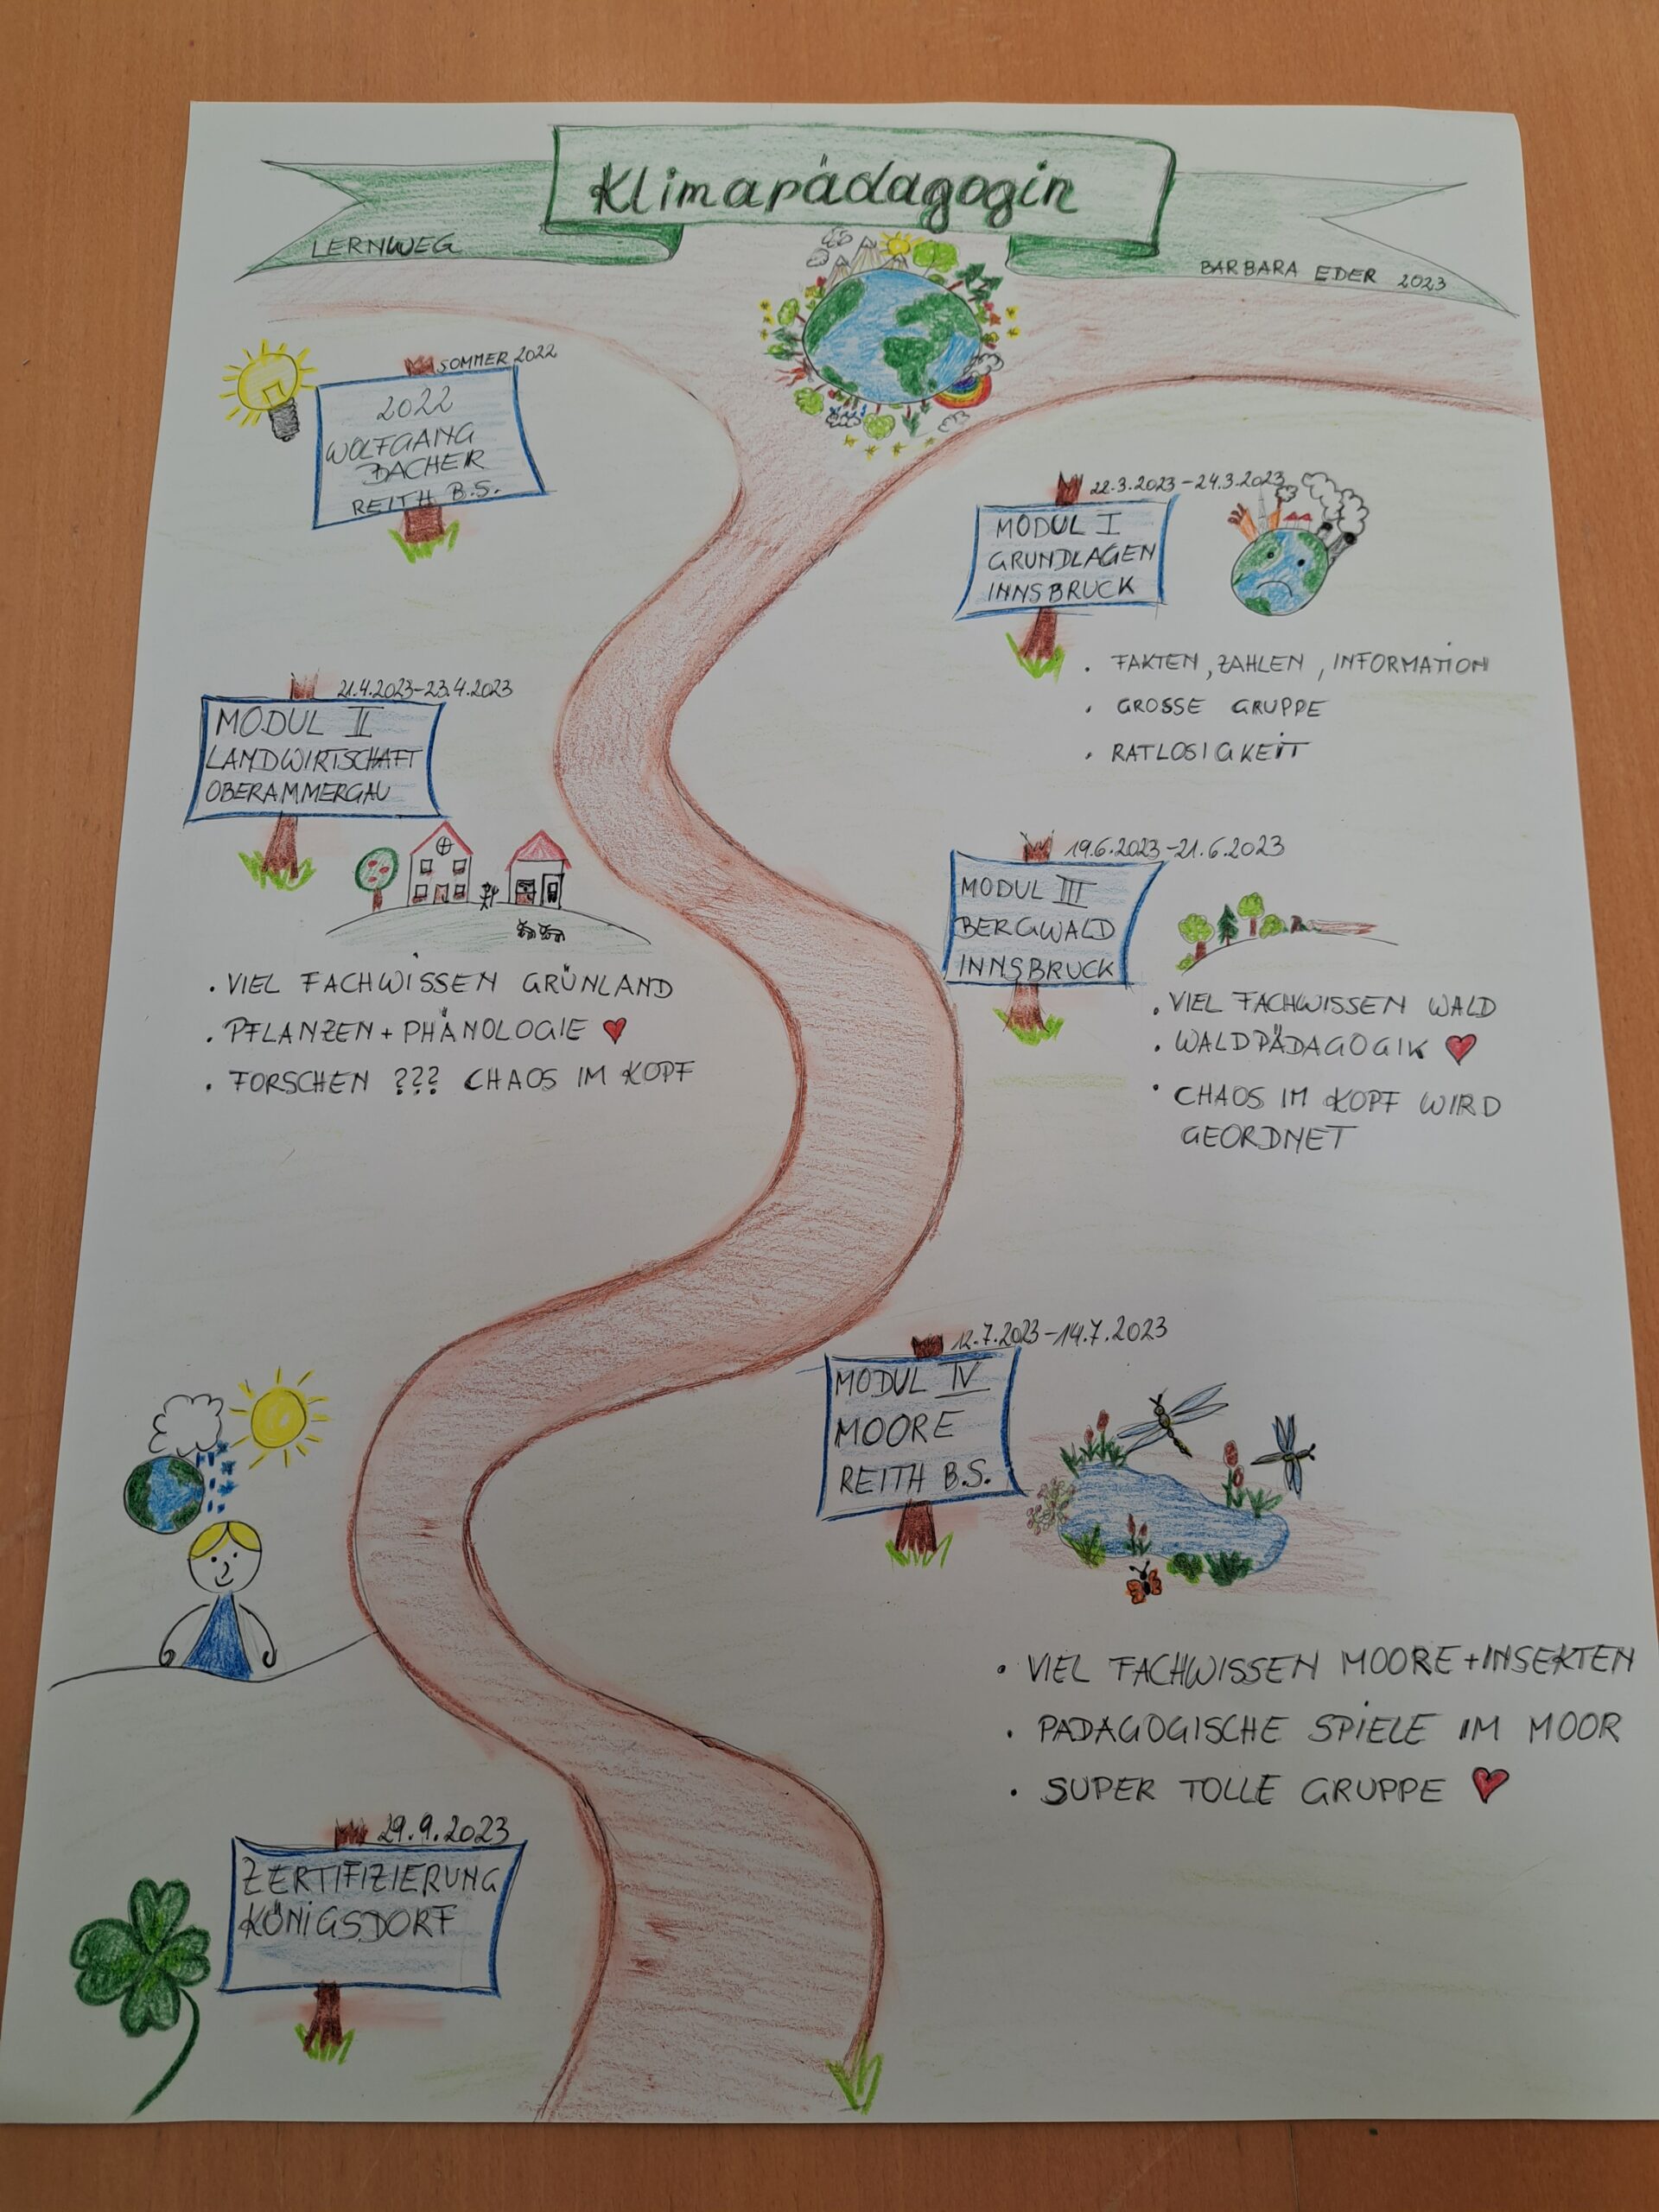 Klimapädagogin
LERNWEG
BARBARA EDER 2023
SOMMER 2022
2022
WOLFGANG
BACHER
REITH B.S.
22.3.2023-24.3.2023
MODUL I
GRUNDLAGEN
INNSBRUCK
. FAKTEN, ZAHLEN, INFORMATION
. GROSSE GRUPPE
. RATLOSIGKEIT
21.4.2023-23.4.2023
MODUL II
LANDWIRTSCHAFT
OBERAMMERGAU
. VIEL FACHWISSEN GRÜNLAND
. PFLANZEN + PHÄNOLOGIE ♥
. FORSCHEN ??? CHAOS IM KOPF
19.6.2023-21.6.2023
MODUL III
BERGWALD
INNSBRUCK
. VIEL FACHWISSEN WALD
. WALDPÄDAGOGIK ♥
. CHAOS IM KOPF WIRD
GEORDNET
12.7.2023-14.7.2023
MODUL IV
MOORE
REITH B.S.
. VIEL FACHWISSEN MOORE + INSEKTEN
. PADAGOGISCHE SPIELE IM MOOR
. SUPER TOLLE GRUPPE ♥
29.9.2023
ZERTIFIZIERUNG
KÖNIGSDORF